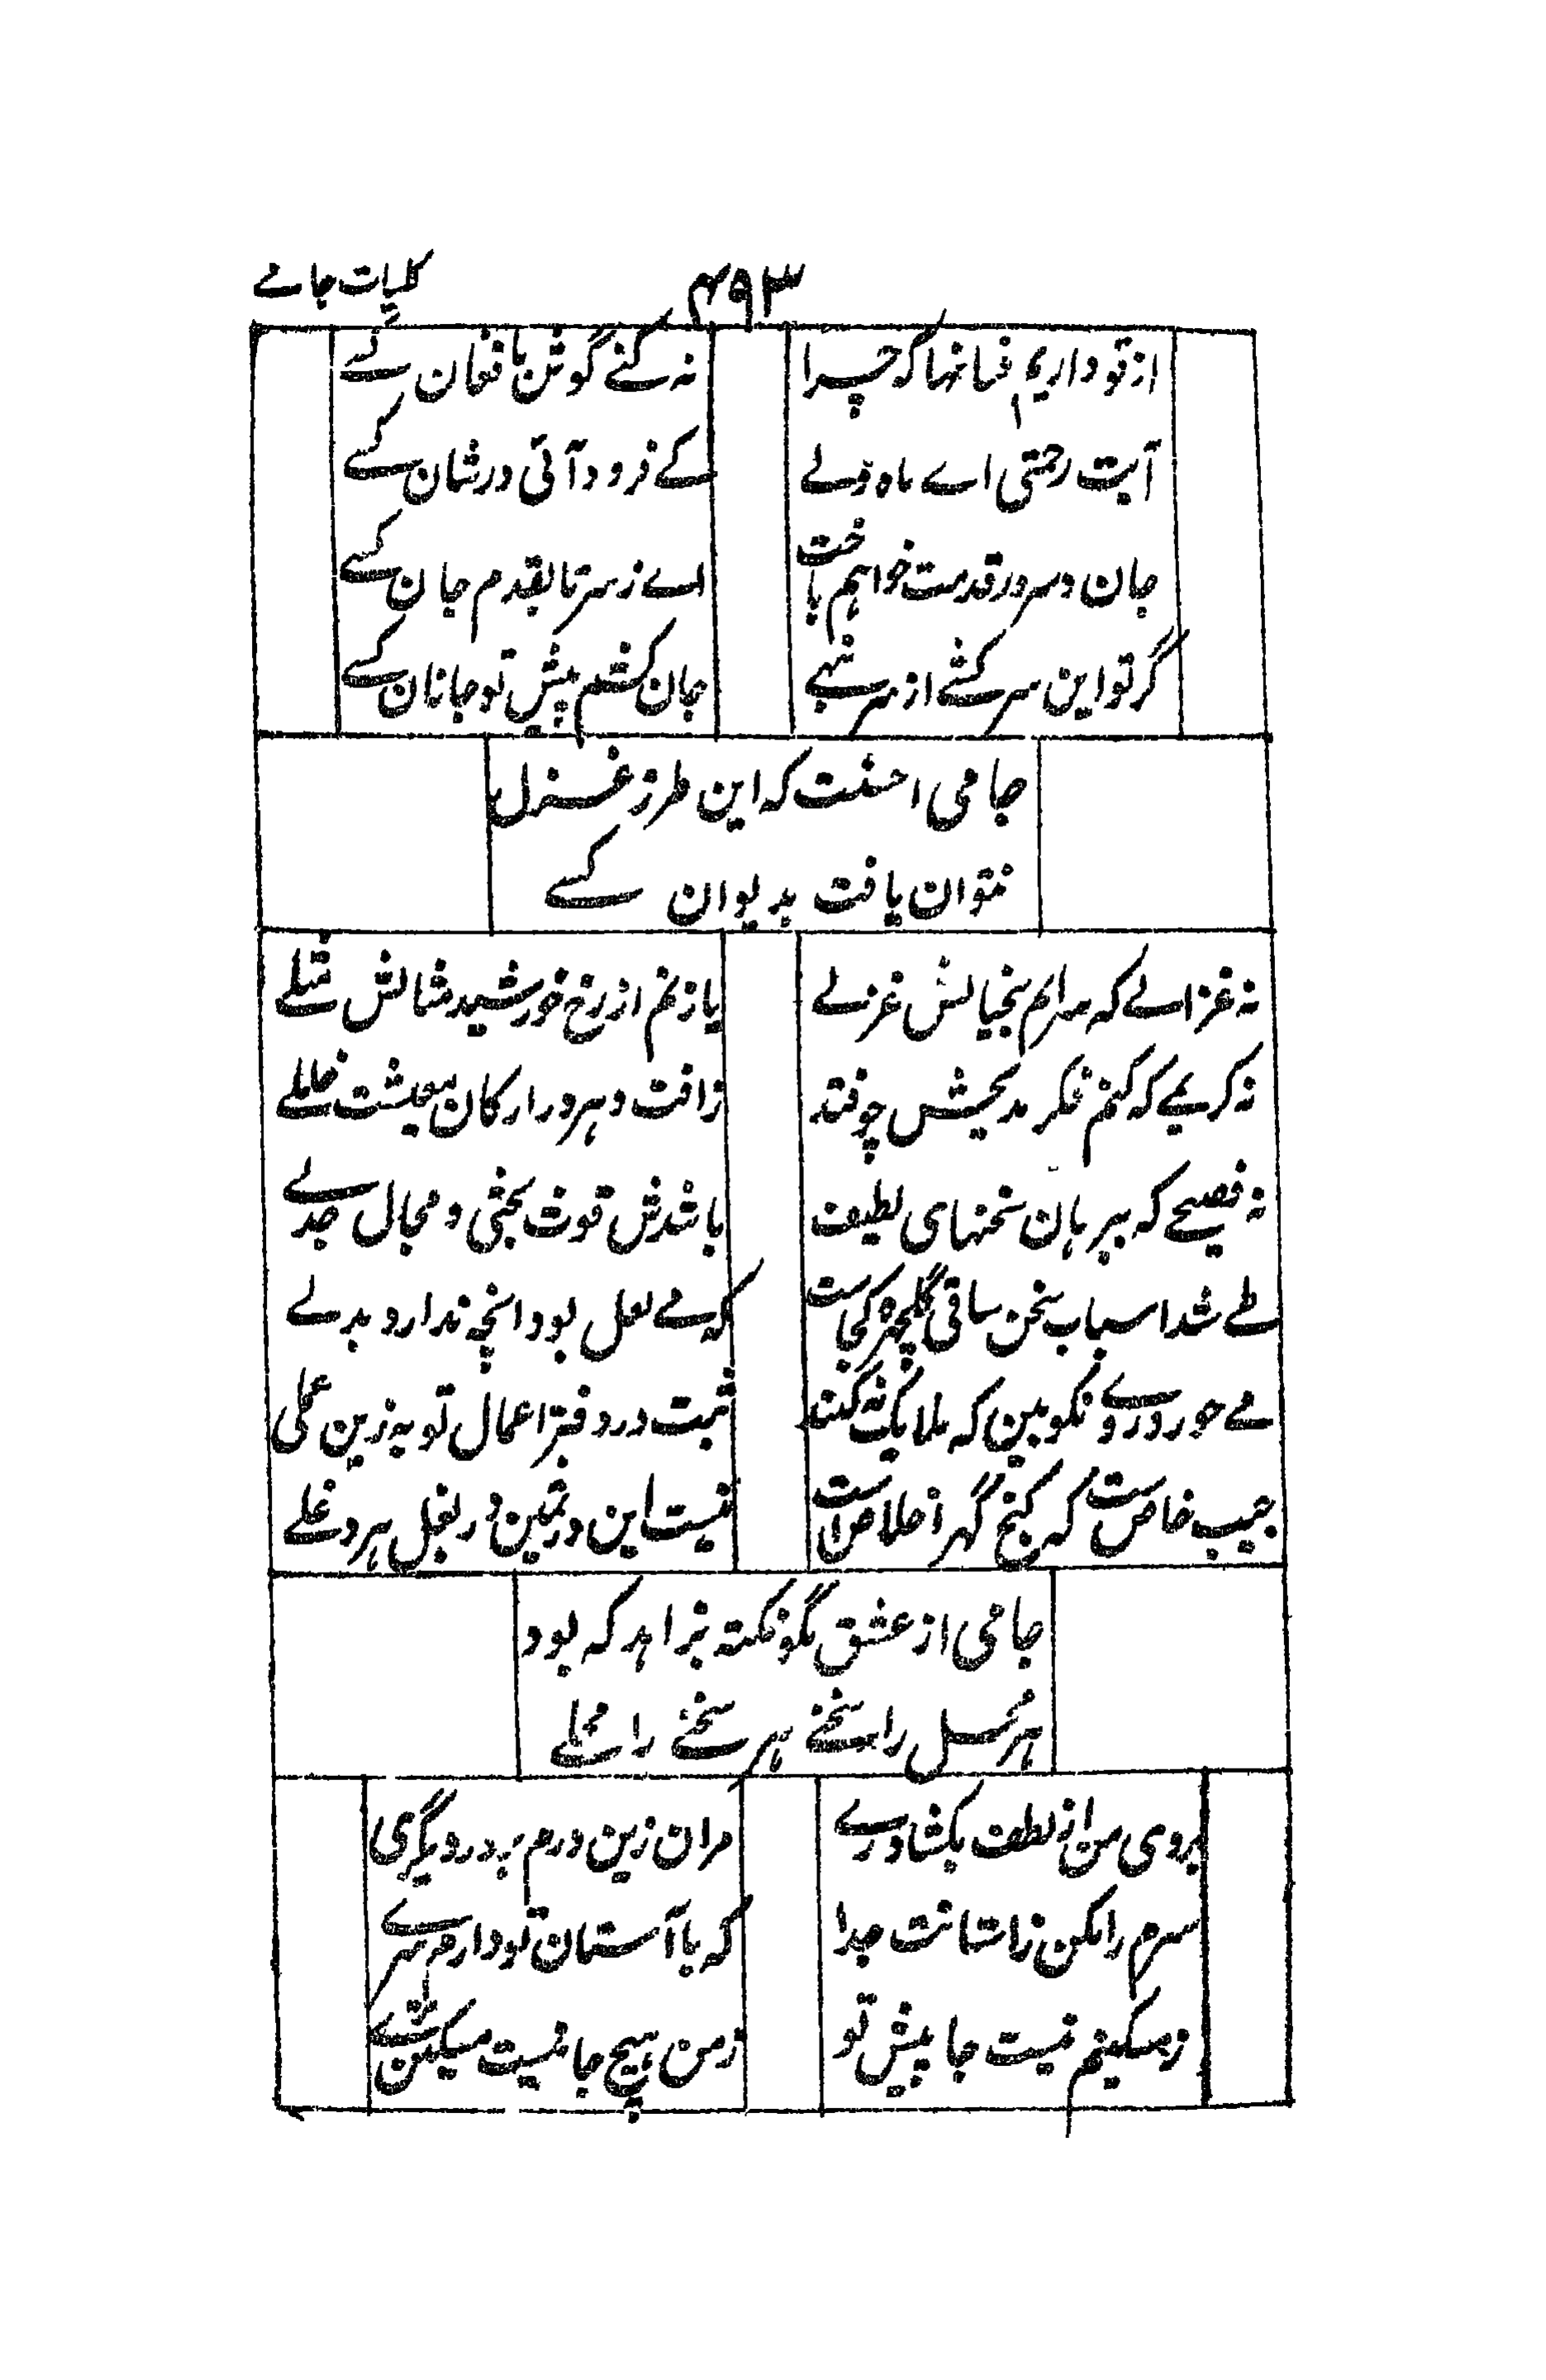 کلیات جامے
۴۹۳
از تو داریم فغانها که چرا
نه کنے گوش بافغان کسے
آیت رحمتی اے ماه ولے
کے فرود آئی در شان کسے
جان و سر در قدمت خواهم باخت
اے ز سر تا بقدم جان کسے
گر تو این سر کشے از سر نهے
جان کشم پیش تو جانان کسے
جامی احسنت که این طرز غزل
نتوان یافت بدیوان کسے
نه غزالے که سرایم بخیالش غزلے
یا زنم از رخ خورشید مثالش مثلے
نه کریمے که کنم فکر مدیحش چو فتد
ز افت دهر در ارکان معیشت خللے
نه فصیحے که ببرهان سخنهای لطیف
باشدش قوت بحثی و مجال جدلے
طے شد اسباب سخن ساقی گلچهره کجاست
که مے لعل بود انچه ندارد بدلے
مے خور و روے نکو بین که ملایک نه کنند
ثبت در دفتر اعمال تو به زین عملی
جیب خاص ست که گنج گهر اخلاص ست
نیست این در ثمین در بغل هر دغلے
جامی از عشق مگو نکته بزاهد که بود
هر محل را سخنے هر سخنے را محلے
بروی من از لطف بکشا درے
مران زین درم بر در دیگری
سرم را مکن ز استانت جدا
که با آستان تو دارم سرے
ز مسکینم نیست جا پیش تو
ز من هیچ جا نیست مسکین ترے